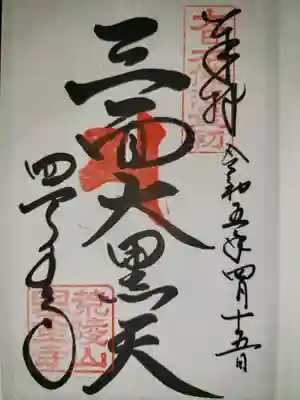 奉拝
令和五年四月十五日
三面大黒天
四天王寺
荒陵山
四天王寺